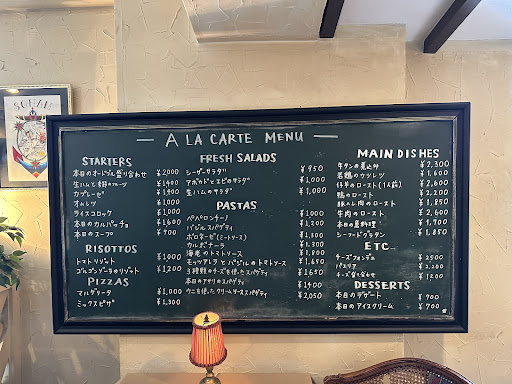 A LA CARTE MENU
STARTERS
本日のオードブル盛り合わせ ¥2000
生ハムと季節のフルーツ ¥1400
カプレーゼ ¥1400
オムレツ ¥1000
ライスコロッケ ¥1000
本日のカルパッチョ ¥1600
本日のスープ ¥700
RISOTTOS
トマトリゾット ¥1400
ゴルゴンゾーラのリゾット ¥1200
PIZZAS
マルゲリータ ¥1,000
ミックスピザ ¥1,300
FRESH SALADS
シーザーサラダ ¥950
アボカドとエビのサラダ ¥1,000
生ハムのサラダ ¥1,000
PASTAS
ペペロンチーノ
バジルスパゲティ
ボロネーゼ(ミートソース) ¥1,300
カルボナーラ ¥1,300
海老のトマトソース ¥1,800
モッツァレラとバジルのトマトソース ¥1,650
3種類のチーズを使ったスパゲティ ¥1650
本日のアサリのスパゲティ ¥1400
ウニを使ったクリームソーススパゲティ ¥2,050
MAIN DISHES
牛タンの煮込み ¥2,300
若鶏のカツレツ ¥1,600
仔羊のロースト(1人前) ¥2,600
鴨のロースト ¥2,200
豚ヒレ肉のロースト ¥1,850
牛肉のロースト ¥2,600
本日の魚料理 ¥1,700
シーフードグラタン ¥1,850
ETC...
チーズフォンデュ ¥2500
パエリア ¥3,200
チーズ盛り合わせ ¥1200
DESSERTS
本日のデザート ¥900
本日のアイスクリーム ¥700